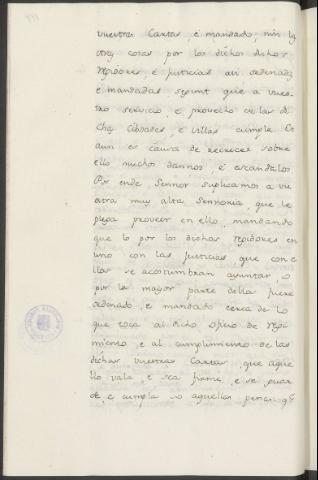 vuestras Cartas, é mandado, nin las
otras cosas por los dichos dichos
regidores, é justicias assi ordenadas
é mandadas segunt que a vues-
tro servicio, é provecho de las di-
chas Cibdades, é villas cumple. Ca
aun es causa de recrecer sobre
ello muchos dannos, é escandalos
Por ende, Sennor suplicamos a vu
estra muy alta Sennoria, que le
plega proveer en ello, mandando
que lo por los dichos regidores en
uno con las justicias que con e-
llas se acostumbran ayuntar, o
por la mayor parte dellos fuere
ordenado, é mandado cerca de lo
que toca al dicho oficio de regi-
miento, é al cumplimiento de las
dichas vuestras Cartas, que aque
llo vala, é sea firme, e se guar
de, é cumpla so aquellas penas, que